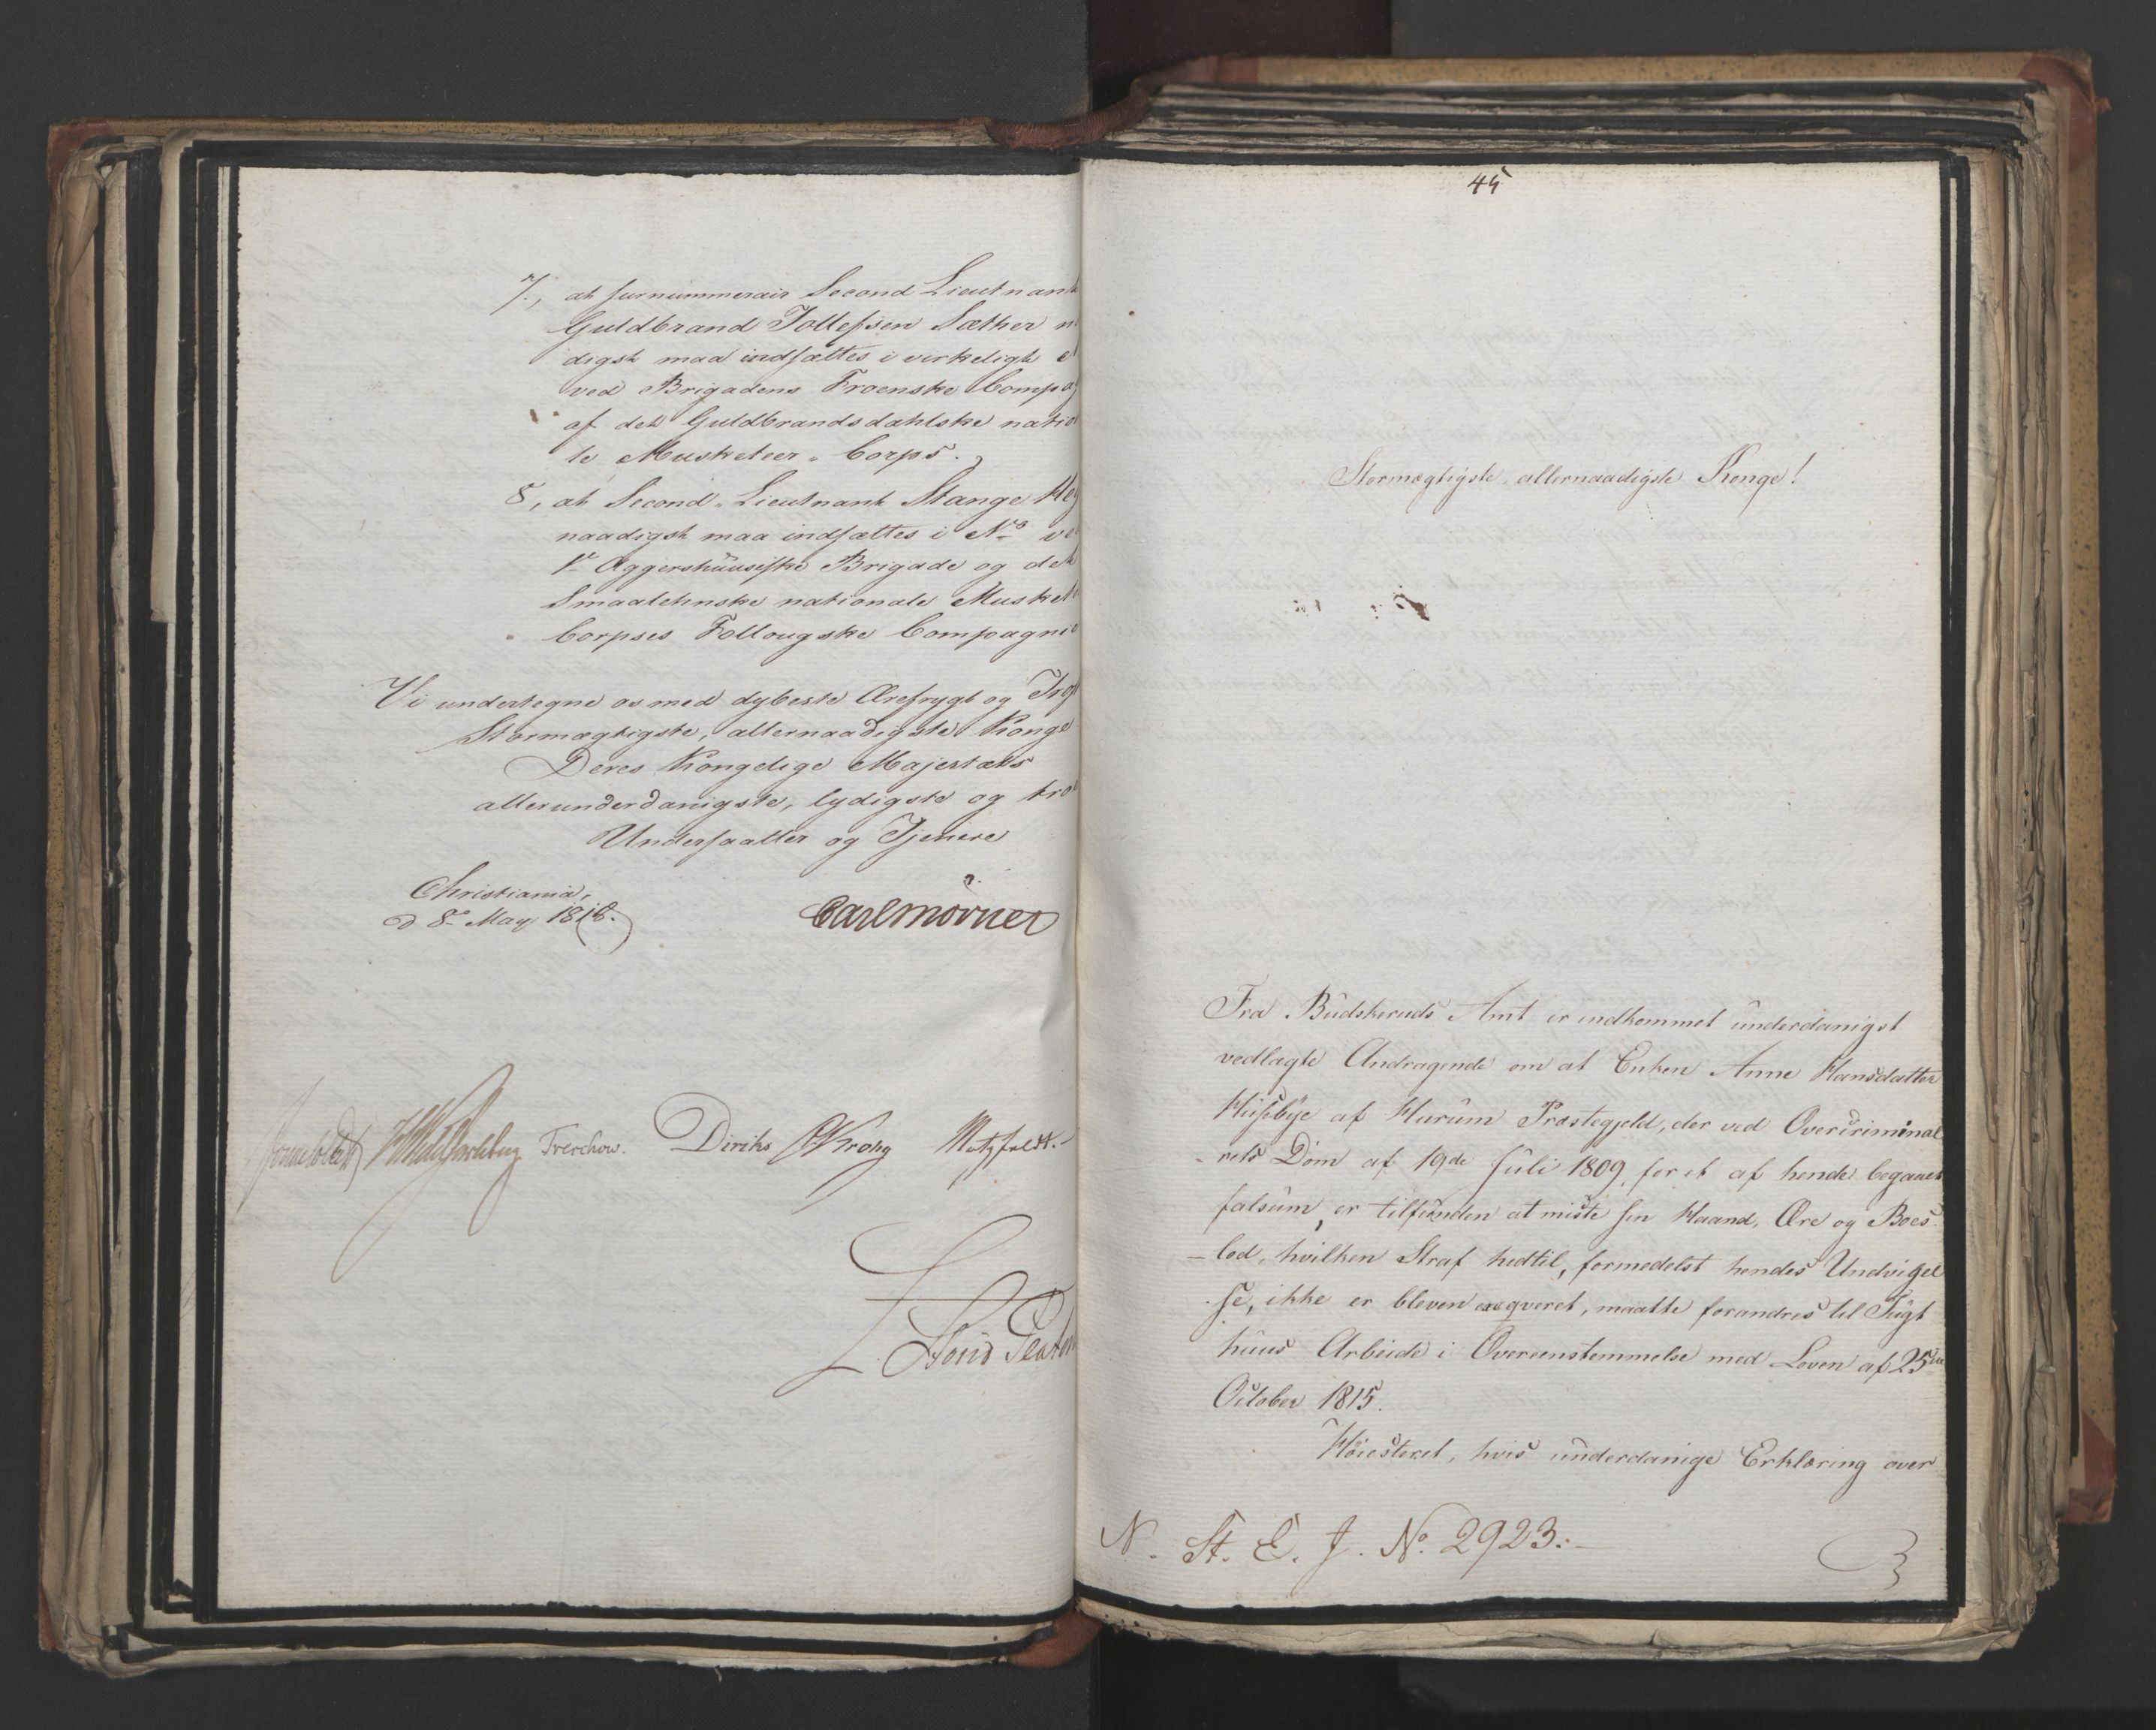 7., at surnummerair Second Lieutnant
Guldbrand Tollefsen Sæther
digst maa indsættes i virkeligt
ved Brigadens Froenske Compag
af det Guldbrandsdahlske natio
le Musketeer-Corps.
8, at Second-Lieutnant Stange
naadigst maa indsættes i No ve
1ste Aggershuusiske Brigade og det
Smaalehnske nationale Musket
Corpses Follougske Compagnie
Vi undertegne os med dybeste Ærefrygt og
Stormægtigste, allernaadigste Konge
Deres Kongelige Majestæts
allerunderdanigste, lydigste og tro
Undersaatter og Tjenere
Christiania,
d 8de May 1818.
Carl Mörner
Sommerfeldt Treschow. Diriks Krohg Motzfeldt.
45
Stormægtigste, allernaadigste Konge!
Fra Budskeruds Amt er indkommet underdanigst
vedlagte Andragende om at Enken Anne Hansdatter
Husebye af Hurum Præstegjeld, der ved Overcriminal
-rets Dom af 19de Juli 1809, for et af hende begaaet
falsum, er tilfunden at miste sin Haand, Ære og Boes-
-lod, hvilken Straf hidtil, formedelst hendes Undvigel
-se, ikke er bleven exeqveret, maatte forandres til Tugt
huus Arbeide i Overeenstemmelse med Loven af 25de
October 1815.
Höiesteret, hvis underdanige Erklæring over
N. St. E. J. No. 2923.-